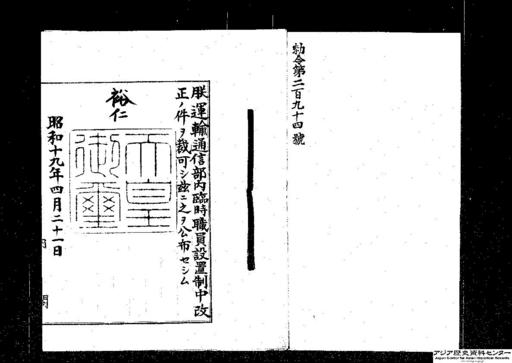 勅令第二百九十四號
朕運輸通信部內臨時職員設置制中改
正ノ件ヲ裁可シ玆ニ之ヲ公布セシム
裕仁
天皇
御璽
昭和十九年四月二十一日
アジア歴史資料センター
Japan Center for Asian Historical Records